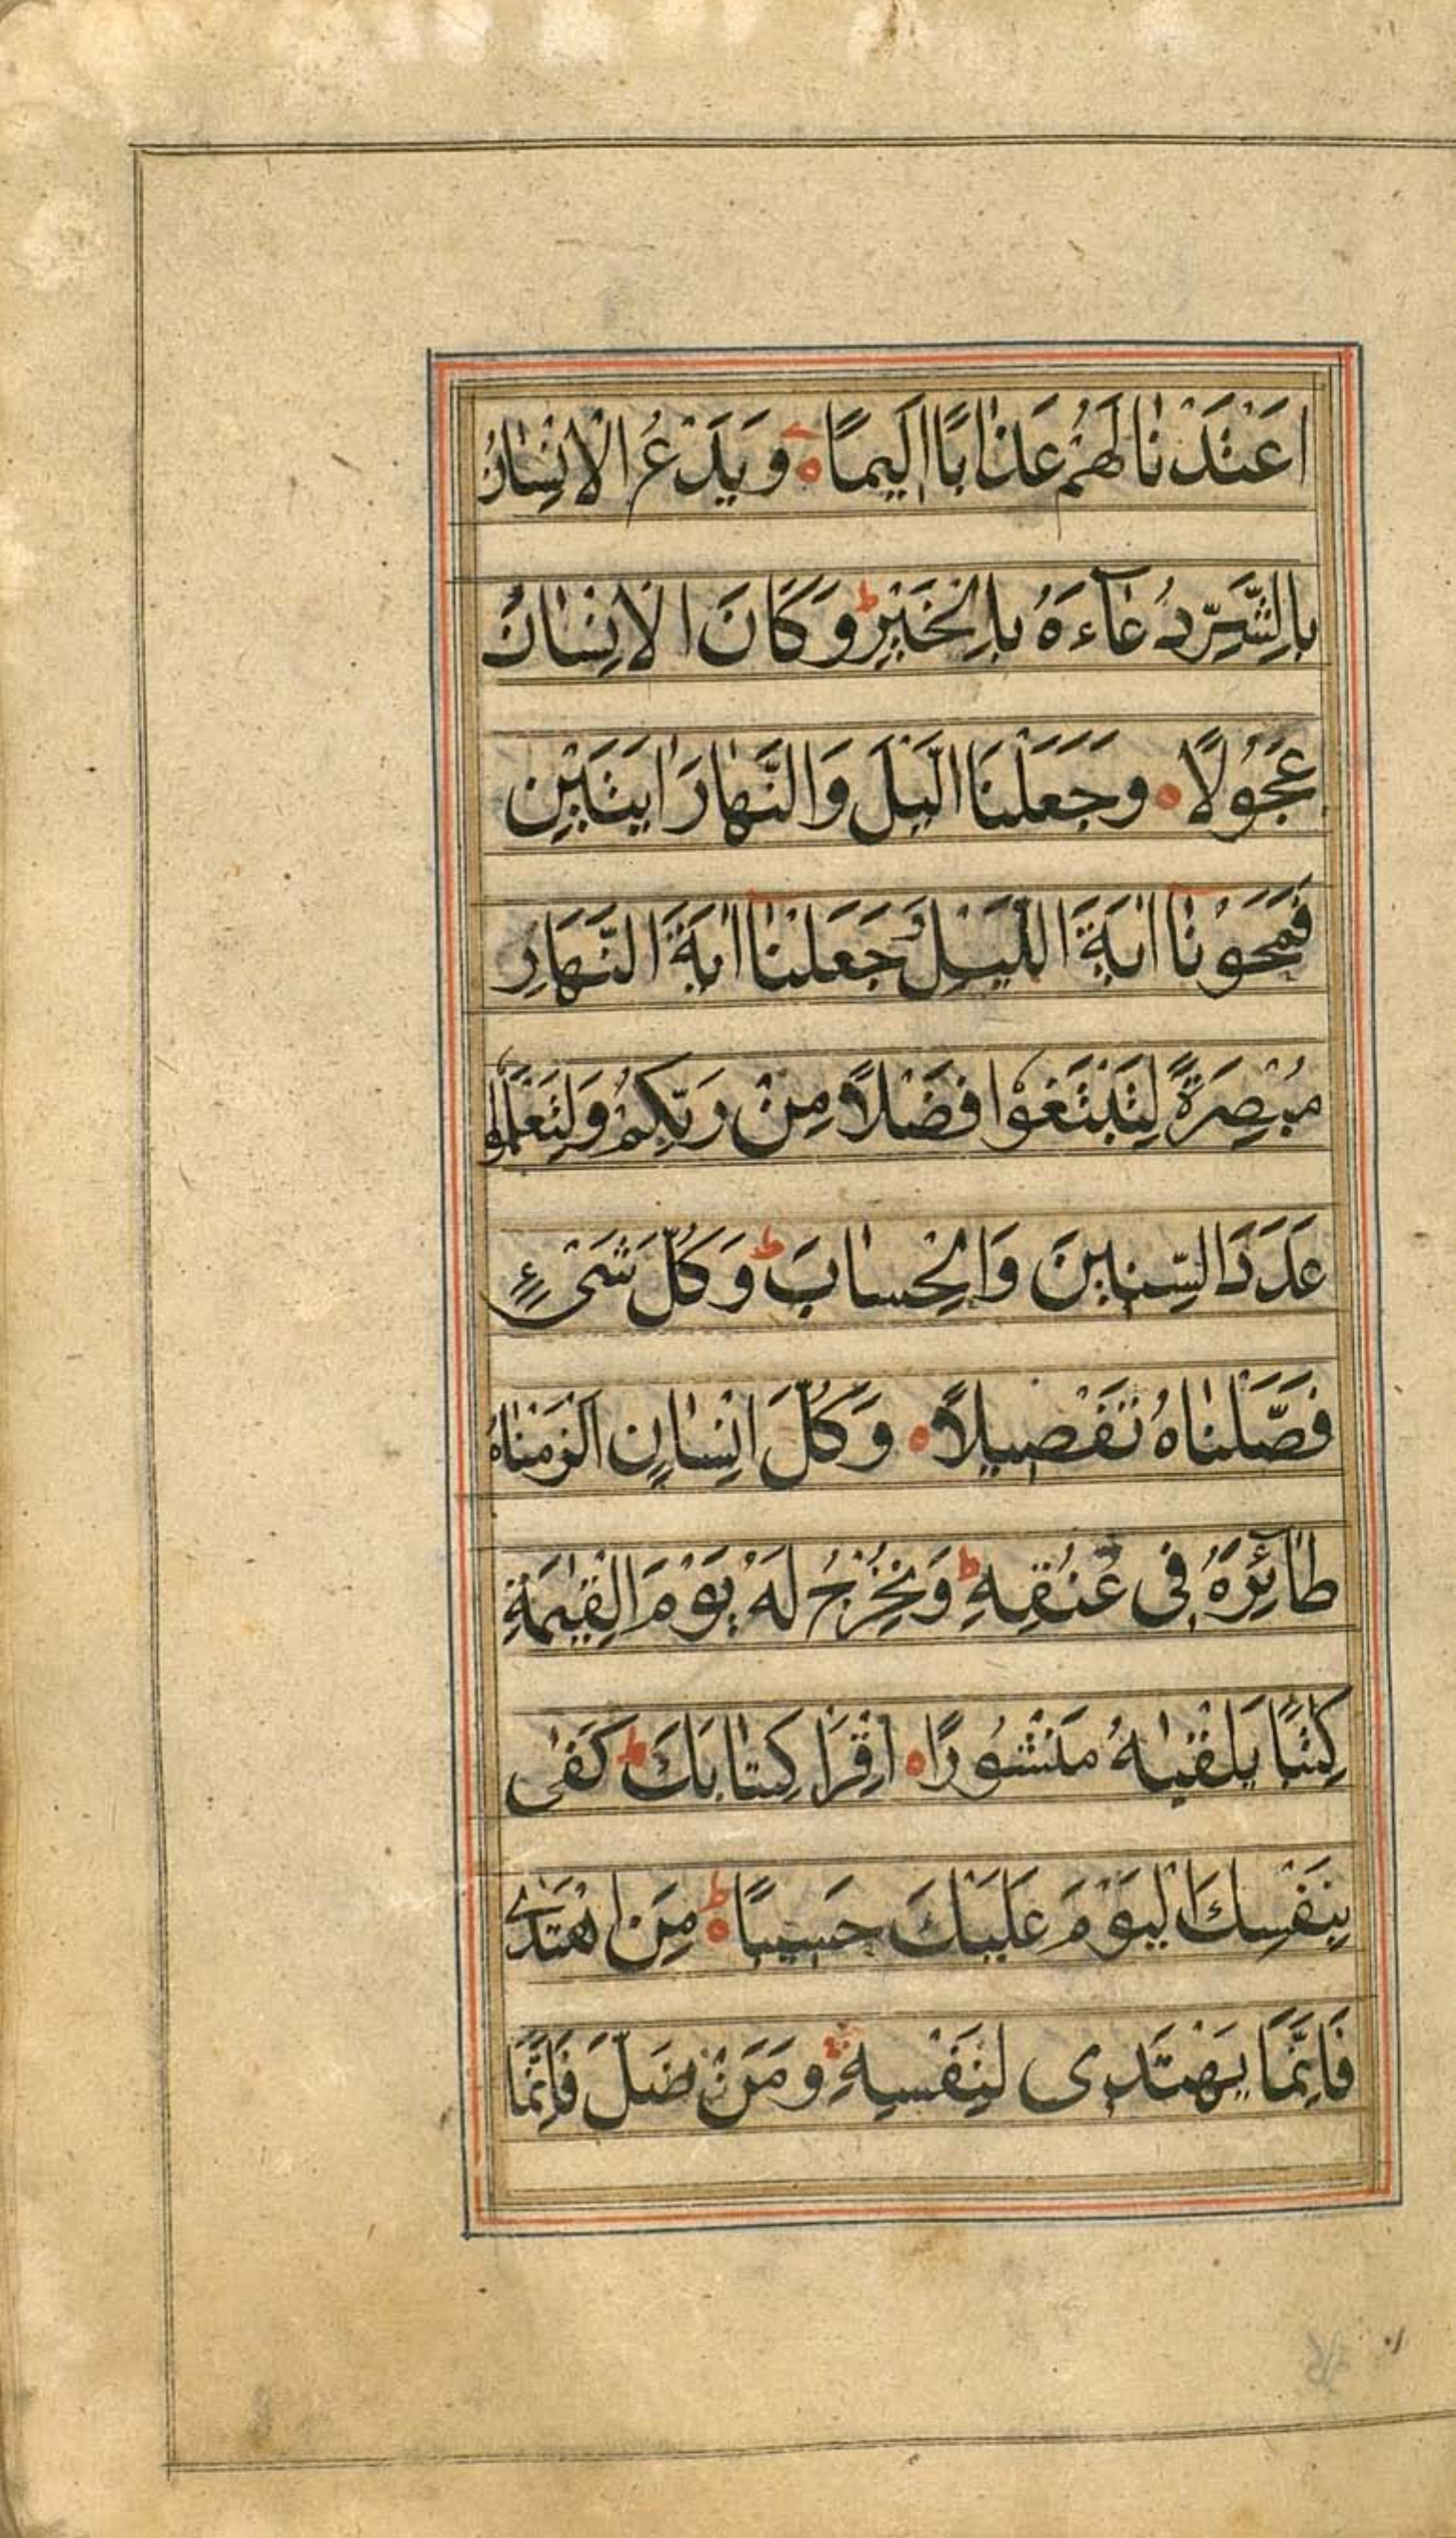 اَعْتَدْنَا لَهُمْ عَذَابًا اَلِيمًا ه وَيَدْعُ الْاِنْسَانُ
بِالشَّرِّ دُعَآءَهُ بِالْخَيْرِ ط وَكَانَ الْاِنْسَانُ
عَجُولًا ه وَجَعَلْنَا الَّيْلَ وَالنَّهَارَ ايَتَيْنِ
فَمَحَوْنَا ايَةَ اللَّيْلِ وَجَعَلْنَا ايَةَ النَّهَارِ
مُبْصِرَةً لِتَبْتَغُوْا فَضْلًا مِنْ رَبِّكُمْ وَلِتَعْلَمُوا
عَدَدَ السِّنِينَ وَالْحِسَابَ ط وَكُلَّ شَىْءٍ
فَصَّلْنَاهُ تَفْصِيلًا ه وَكُلَّ اِنْسَانٍ اَلْزَمْنَاهُ
طَآئِرَهُ فِى عُنُقِهِ ط وَنُخْرِجُ لَهُ يَوْمَ الْقِيٰمَةِ
كِتٰبًا يَلْقٰيهُ مَنْشُورًا ه اِقْرَا كِتَابَكَ ط كَفٰى
بِنَفْسِكَ الْيَوْمَ عَلَيْكَ حَسِيبًا ه ط مَنِ اهْتَدٰى
فَاِنَّمَا يَهْتَدِى لِنَفْسِهِ وَمَنْ ضَلَّ فَاِنَّمَا